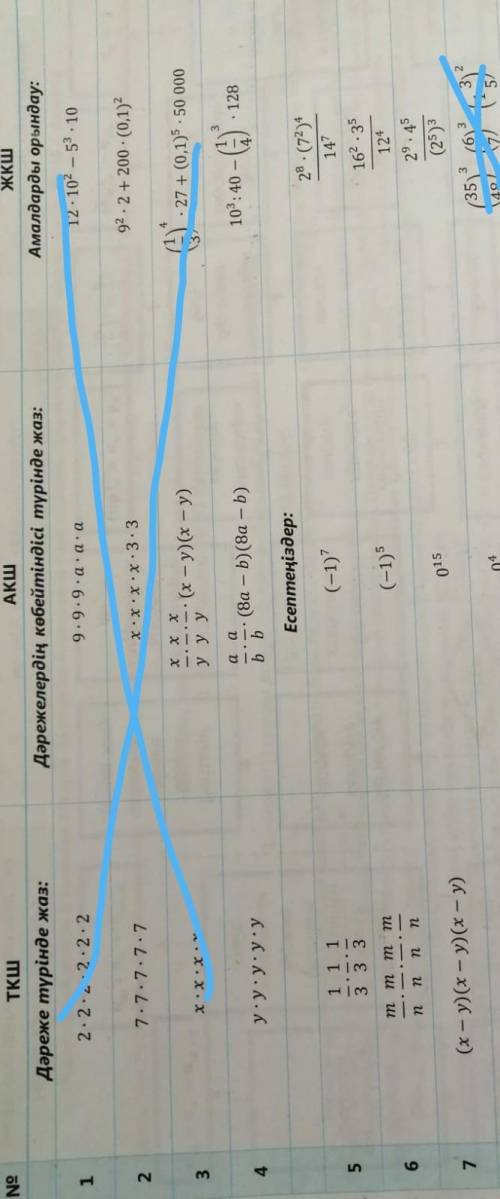 № ТКШ АКШ ЖКШ
Дәреже түрінде жаз: Дәрежелердің көбейтіндісі түрінде жаз: Амалдарды орындау:
1 2 · 2 · 2 · 2 · 2 · 2 9 · 9 · 9 · a · a · a 12 · 10² − 5³ · 10
2 7 · 7 · 7 · 7 · 7 x · x · x · x · 3 · 3 9² · 2 + 200 · (0,1)²
3 x · x · x · x/y · x/y · x/y · (x − y)(x − y) (1/3)⁴ · 27 + (0,1)⁵ · 50 000
4 y · y · y · y · y a/b · a/b · (8a − b)(8a − b) 10³ : 40 − (1/4)³ · 128
Есептеңіздер:
5 1/3 · 1/3 · 1/3 (−1)⁷ 2⁸ · (7²)⁴/14⁷
6 m/n · m/n · m/n · m/n (−1)⁵ 16² · 3⁵/12⁴
7 (x − y)(x − y)(x − y) 0¹⁵ 2⁹ · 4⁵/(2⁵)³
0⁴